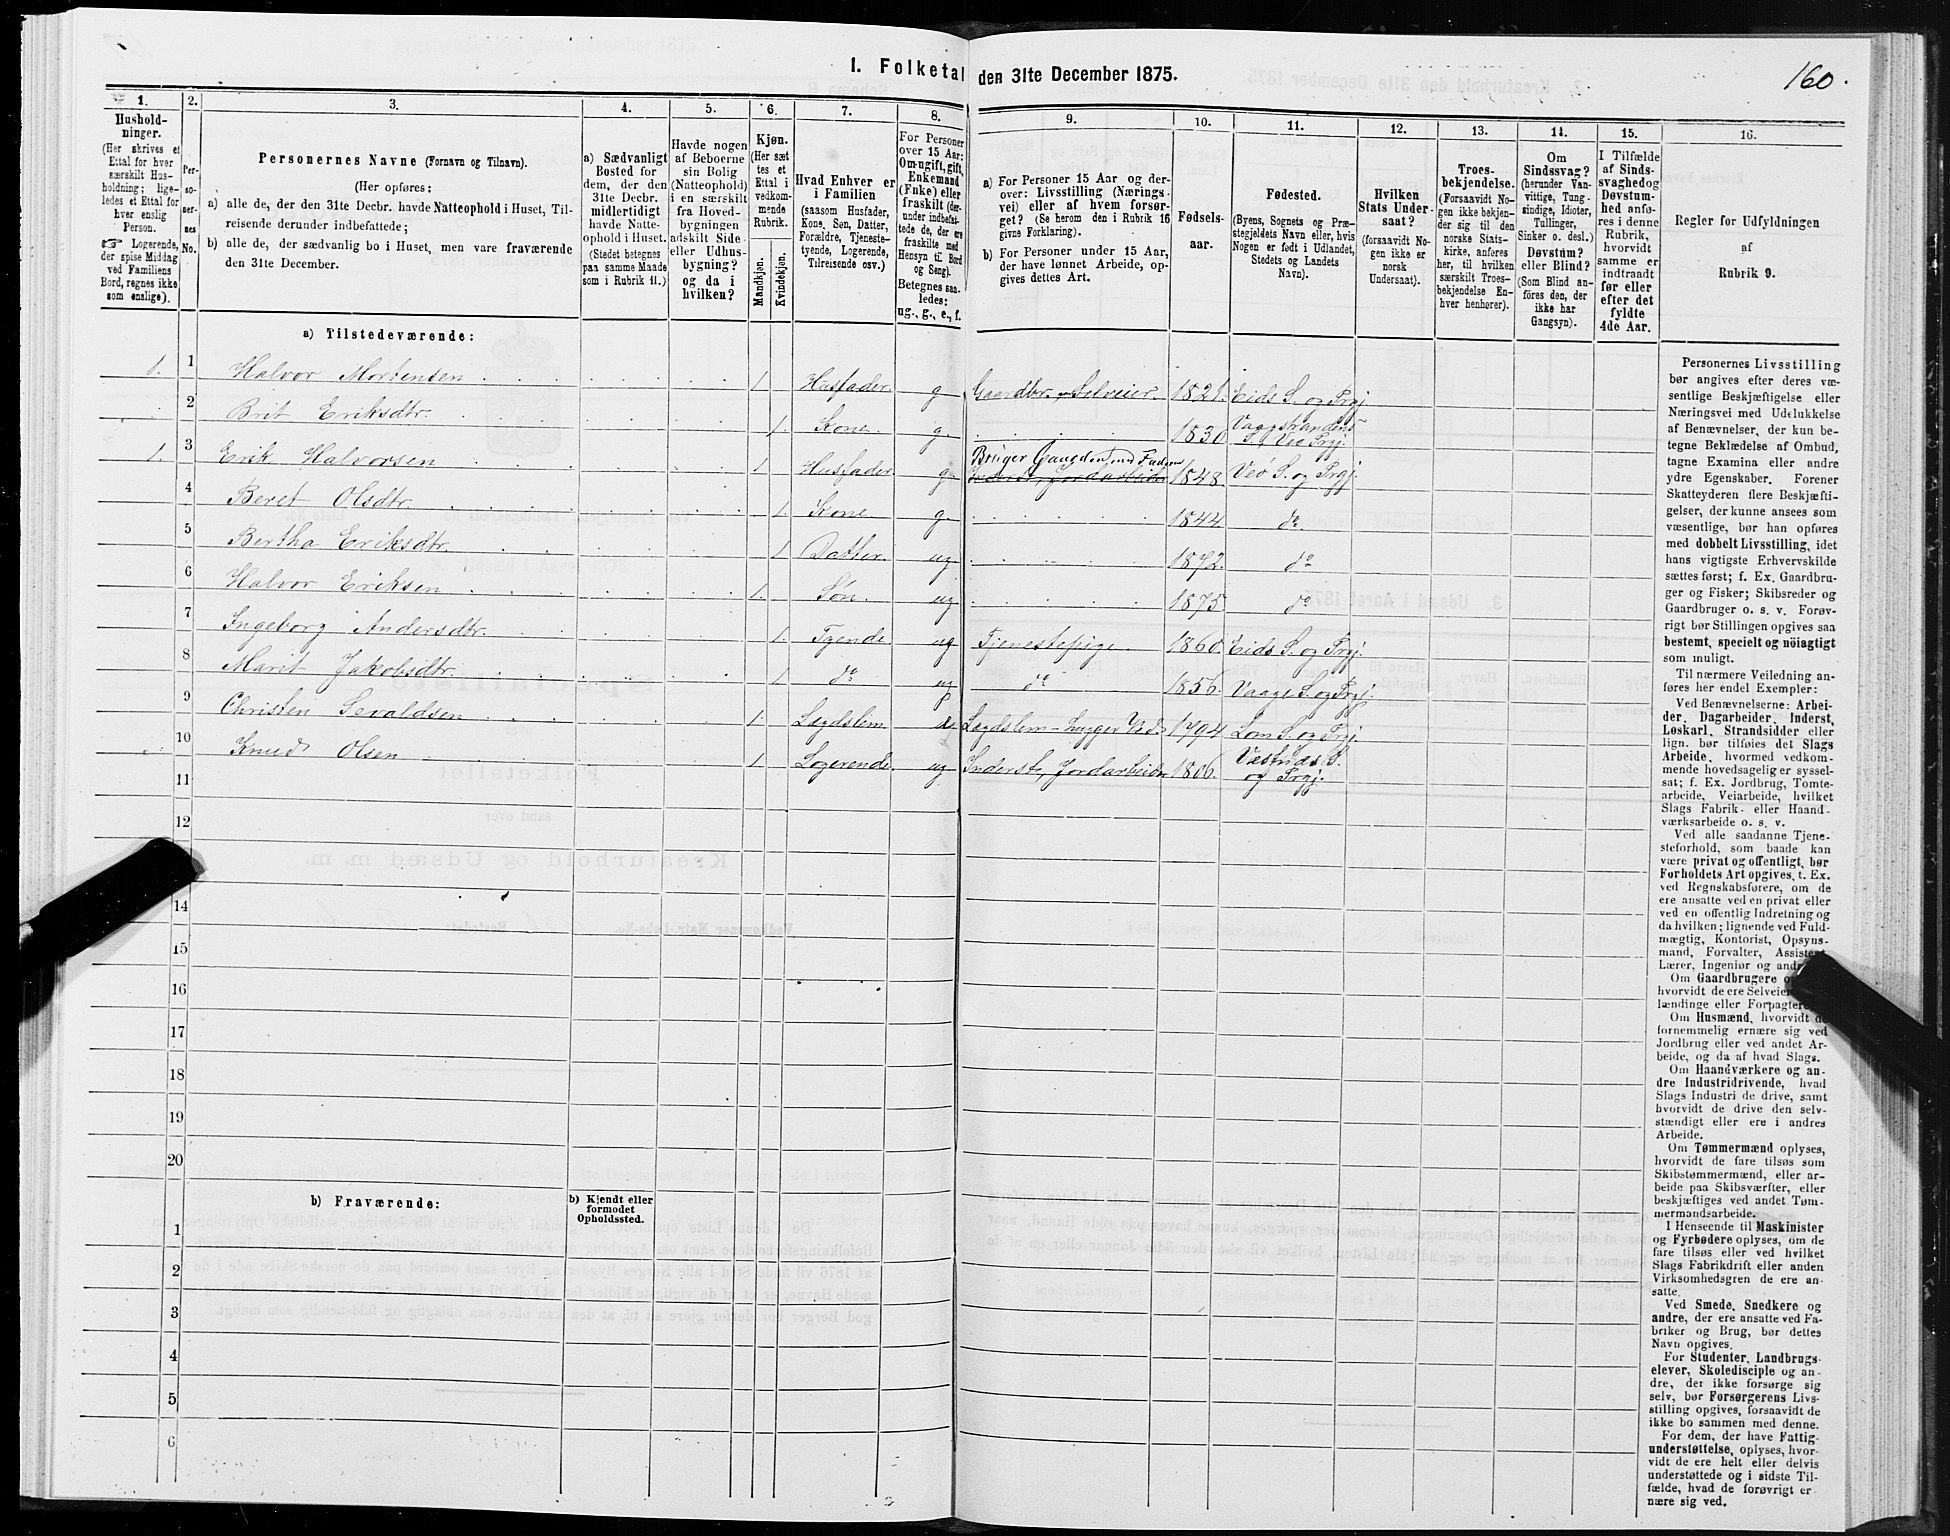 I. Folketal den 31te December 1875.
160.
1.
Hushold-
ninger.
(Her skrives et
Ettal for hver
særskilt Hus-
holdning; lige-
ledes et Ettal for
hver enslig
Person.
☞ Logerende,
der spise Middag
ved Familiens
Bord, regnes ikke
som enslige).
2.
Per-
so-
ner-
nes
No.
3.
Personernes Navne (Fornavn og Tilnavn).
(Her opføres:
a) alle de, der den 31te Decbr. havde Natteophold i Huset, Til-
reisende derunder indbefattede;
b) alle de, der sædvanlig bo i Huset, men vare fraværende
den 31te December.
4.
a) Sædvanligt
Bosted for
dem, der den
31te Decbr.
midlertidigt
havde Natte-
ophold i Huset.
(Stedet betegnes
paa samme Maade
som i Rubrik 11.)
5.
Havde nogen
af Beboerne
sin Bolig
(Natteophold)
i en særskilt
fra Hoved-
bygningen
adskilt Side-
eller Udhus-
bygning?
og da i
hvilken?
6.
Kjøn.
(Her sæt
tes et
Ettal i
vedkom-
mende
Rubrik.
Mandkjøn.
Kvindekjøn.
7.
Hvad Enhver er
i Familien
(saasom Husfader,
Kone, Søn, Datter,
Forældre, Tjeneste-
tyende, Logerende,
Tilreisende osv.)
8.
For Personer
over 15 Aar:
Om ugift, gift,
Enkemand
(Enke) eller
fraskilt (der-
under indbefat-
tede de, der ere
fraskilte med
Hensyn til Bord
og Seng).
Betegnes saa-
ledes:
ug., g., e., f.
9.
a) For Personer 15 Aar og der-
over: Livsstilling (Nærings-
vei) eller af hvem forsør-
get? (Se herom den i Rubrik 16
givne Forklaring).
b) For Personer under 15 Aar,
der have lønnet Arbeide, op-
gives dettes Art.
10.
Fødsels-
aar.
11.
Fødested.
(Byens, Sognets og Præ-
stegjeldets Navn eller, hvis
Nogen er født i Udlandet,
Stedets og Landets
Navn).
12.
Hvilken
Stats Under-
saat?
(forsaavidt No-
gen ikke er
norsk
Undersaat).
13.
Troes-
bekjendelse.
(Forsaavidt No-
gen ikke bekjen-
der sig til den
norske Stats-
kirke, anføres
her, til hvilken
særskilt Troes-
bekjendelse En-
hver henhører).
14.
Om
Sindssvag?
(herunder Van-
vittige, Tung-
sindige, Idioter,
Tullinger,
Sinker o. desl.)
Døvstum?
eller Blind?
(Som Blind an-
føres den, der
ikke har
Gangsyn).
15.
I Tilfælde
af Sinds-
svaghed og
Døvstum-
hed anfø-
res i denne
Rubrik,
hvorvidt
samme er
indtraadt
før eller
efter det
fyldte
4de Aar.
16.
Regler for Udfyldningen
af
Rubrik 9.
a) Tilstedeværende:
1. 1 Halvor Mortensen 1. Husfader g. Gaardbr. Selveier. 1821. Eids S. og Prgj.
2 Brit Eriksdtr. 1. Kone. g. 1830 Vaagstrandens
S., Veø Prgj.
1. 3 Erik Halvorsen 1 Husfader g. Bruger Gaarden med Faderen
Inderst, Jordarbeider 1848. Veø S. og Prgj.
4 Beret Olsdtr. 1. Kone g. 1844 do
5 Bertha Eriksdtr. 1 Datter ug 1872. do
6 Halvor Eriksen 1. Søn ug 1875 do
7 Ingeborg Andersdtr. 1. Tyende ug Tjenestepige 1860. Eids S. og Prgj.
8 Marit Jakobsdtr. 1 do ug do 1856. Vaage S. og Prgj.
9 Christen Sevaldsen 1. Lægdslem Lægdslem – hugger Ved 1794 Lom S. og Prgj.
10 Knud Olsen 1. Logerende ug Inderst, Jordarbeider 1806. Vestnæs S.
og Prgj.
11
12
14
15
16
17
18
19
20
b) Fraværende:
b) Kjendt eller
formodet
Opholdssted.
1
2
3
4
5
6
Personernes Livsstilling
bør angives efter deres væ-
sentlige Beskjæftigelse eller
Næringsvei med Udelukkelse
af Benævnelser, der kun be-
tegne Beklædelse af Ombud,
tagne Examina eller andre
ydre Egenskaber. Forener
Skatteyderen flere Beskjæfti-
gelser, der kunne ansees som
væsentlige, bør han opføres
med dobbelt Livsstilling, idet
hans vigtigste Erhvervskilde
sættes først; f. Ex. Gaardbru-
ger og Fisker; Skibsreder og
Gaardbruger o. s. v. Forøv-
rigt bør Stillingen opgives saa
bestemt, specielt og nöiagtigt
som muligt.
Til nærmere Veiledning an-
føres her endel Exempler:
Ved Benævnelserne: Arbei-
der, Dagarbeider, Inderst,
Løskarl, Strandsidder eller
lign. bør tilføies det Slags
Arbeide, hvormed vedkom-
mende hovedsagelig er syssel-
sat; f. Ex. Jordbrug, Tomte-
arbeide, Veiarbeide, hvilket
Slags Fabrik- eller Haand-
værksarbeide o. s. v.
Ved alle saadanne Tjene-
steforhold, som baade kan
være privat og offentligt, bør
Forholdets Art opgives, t. Ex.
ved Regnskabsførere, om de
ere ansatte ved en privat eller
ved en offentlig Indretning og
da hvilken; lignende ved Fuld-
mægtig, Kontorist, Opsyns-
mand, Forvalter, Assistent,
Lærer, Ingeniør og andre.
Om Gaardbrugere
hvorvidt de ere Selveiere,
lændinge eller Forpagtere.
Om Husmænd, hvorvidt de
fornemmelig ernære sig ved
Jordbrug eller ved andet Ar-
beide, og da af hvad Slags.
Om Haandværkere og an-
dre Industridrivende, hvad
Slags Industri de drive, samt
hvorvidt de drive den selv-
stændigt eller ere i andres
Arbeide.
Om Tømmermænd oplyses,
hvorvidt de fare tilsøs som
Skibstømmermænd, eller ar-
beide paa Skibsværfter, eller
beskjæftiges ved andet Tøm-
mermandsarbeide.
I Henseende til Maskinister
og Fyrbødere oplyses, om de
fare tilsøs eller ved hvilket
Slags Fabrikdrift eller anden
Virksomhedsgren de ere an-
satte.
Ved Smede, Snedkere og
andre, der ere ansatte ved Fa-
briker og Brug, bør dettes
Navn opgives.
For Studenter, Landbrugs-
elever, Skoledisciple og an-
dre, der ikke forsørge sig
selv, bør Forsørgerens Livs-
stilling opgives, forsaavidt de
ikke bo sammen med denne.
For dem, der have Fattig-
understøttelse, oplyses, hvor-
vidt de ere helt eller delvis
understøttede og i sidste Til-
fælde, hvad de forøvrigt er-
nære sig ved.